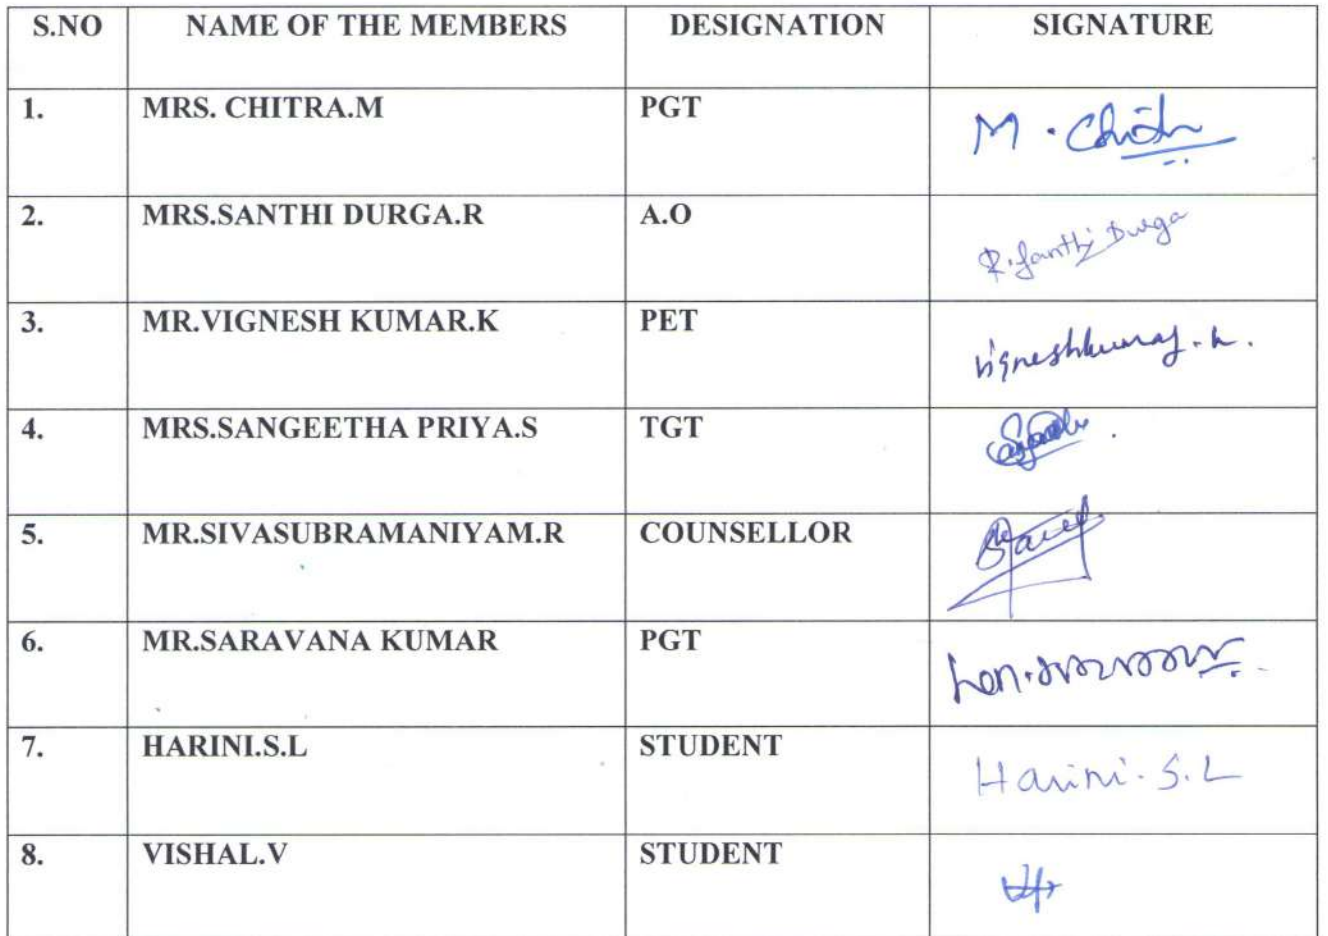 S.NO NAME OF THE MEMBERS DESIGNATION SIGNATURE
1. MRS. CHITRA.M PGT M. Chith
2. MRS.SANTHI DURGA.R A.O R. Santhi Durga
3. MR.VIGNESH KUMAR.K PET Vigneshkumar. K.
4. MRS.SANGEETHA PRIYA.S TGT
5. MR.SIVASUBRAMANIYAM.R COUNSELLOR
6. MR.SARAVANA KUMAR PGT
7. HARINI.S.L STUDENT Harini. S. L
8. VISHAL.V STUDENT